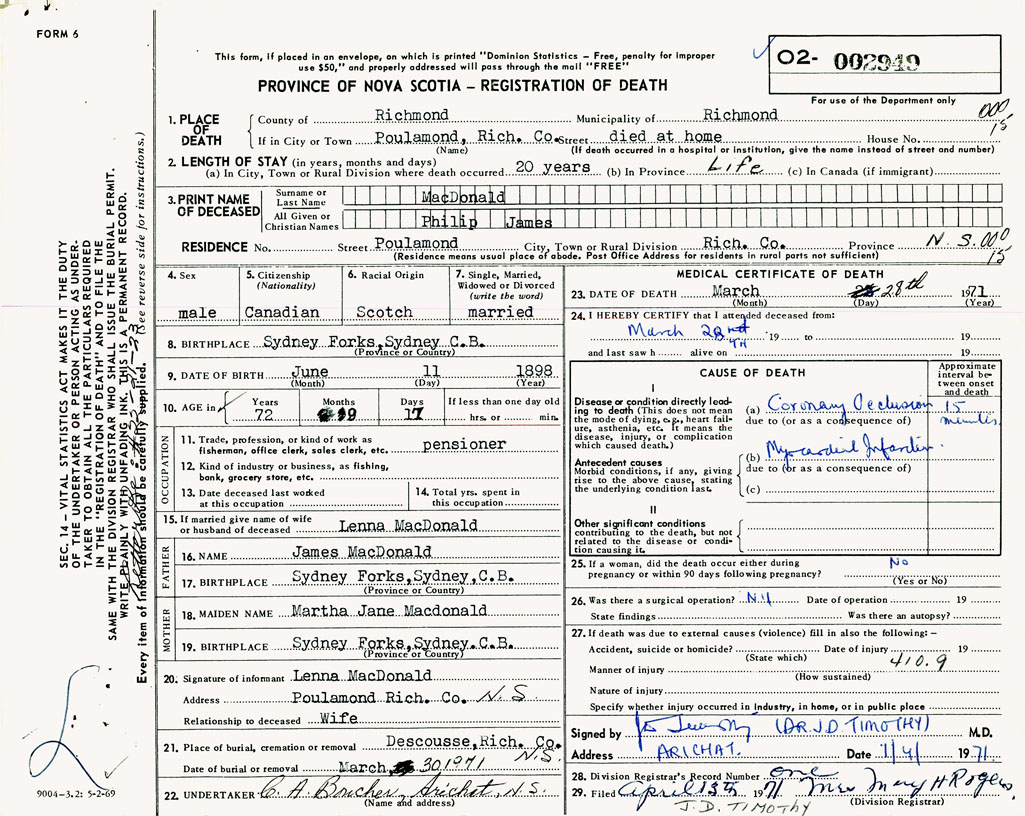 FORM 6
This form, if placed in an envelope, on which is printed "Dominion Statistics – Free, penalty for improper
use $50," and properly addressed will pass through the mail "FREE"
O2- 002949
For use of the Department only
PROVINCE OF NOVA SCOTIA – REGISTRATION OF DEATH
000
15
1. PLACE OF DEATH
County of Richmond Municipality of Richmond
If in City or Town Poulamond, Rich. Co. Street died at home House No.
(Name) (If death occurred in a hospital or institution, give the name instead of street and number)
2. LENGTH OF STAY (in years, months and days)
(a) In City, Town or Rural Division where death occurred 20 years (b) In Province Life (c) In Canada (if immigrant)
3. PRINT NAME OF DECEASED
Surname or Last Name MacDonald
All Given or Christian Names Philip James
RESIDENCE No. Street Poulamond City, Town or Rural Division Rich. Co. Province N.S. 000
15
(Residence means usual place of abode. Post Office Address for residents in rural parts not sufficient)
4. Sex
male
5. Citizenship
(Nationality)
Canadian
6. Racial Origin
Scotch
7. Single, Married,
Widowed or Divorced
(write the word)
married
8. BIRTHPLACE Sydney Forks,Sydney C.B.
(Province or Country)
9. DATE OF BIRTH June 11 1898
(Month) (Day) (Year)
10. AGE in Years Months Days If less than one day old
72 9 17 hrs. or min.
OCCUPATION
11. Trade, profession, or kind of work as
fisherman, office clerk, sales clerk, etc. pensioner
12. Kind of industry or business, as fishing,
bank, grocery store, etc.
13. Date deceased last worked
at this occupation
14. Total yrs. spent in
this occupation
15. If married give name of wife
or husband of deceased Lenna MacDonald
FATHER
16. NAME James MacDonald
17. BIRTHPLACE Sydney Forks,Sydney,C.B.
(Province or Country)
MOTHER
18. MAIDEN NAME Martha Jane Macdonald
19. BIRTHPLACE Sydney Forks,Sydney C.B.
(Province or Country)
20. Signature of informant Lenna MacDonald
Address Poulamond Rich. Co. N.S
Relationship to deceased Wife
21. Place of burial, cremation or removal Descousse,Rich. Co. N.S.
Date of burial or removal March 30 1971
22. UNDERTAKER C. A. Boucher Arichat, N.S.
(Name and address)
MEDICAL CERTIFICATE OF DEATH
23. DATE OF DEATH March 28th 1971
(Month) (Day) (Year)
24. I HEREBY CERTIFY that I attended deceased from:
March 28 TH 19 to 19
and last saw h alive on 19
CAUSE OF DEATH
Approximate
interval be-
tween onset
and death
I
Disease or condition directly lead-
ing to death (This does not
mean the mode of dying, e.g., heart fail-
ure, asthenia, etc. It means the
disease, injury, or complication
which caused death.)
(a) Coronary Occlusion 15 minutes
due to (or as a consequence of)
Antecedent causes
Morbid conditions, if any, giving
rise to the above cause, stating
the underlying condition last.
(b) Myocardial Infarction.
due to (or as a consequence of)
(c)
II
Other significant conditions
contributing to the death, but not
related to the disease or condi-
tion causing it.
25. If a woman, did the death occur either during
pregnancy or within 90 days following pregnancy? No
(Yes or No)
26. Was there a surgical operation? Nil Date of operation 19
State findings Was there an autopsy?
27. If death was due to external causes (violence) fill in also the following: –
Accident, suicide or homicide? Date of injury 19
(State which) 410.9
Manner of injury
(How sustained)
Nature of injury
Specify whether injury occurred in industry, in home, or in public place
Signed by (DR. J.D TIMOTHY) M.D.
Address ARICHAT. Date 1/4/ 1971
28. Division Registrar's Record Number one
29. Filed April 13th 1971 Mrs Mary H Rogers
(Division Registrar)
J.D. TIMOTHY
SEC. 14 – VITAL STATISTICS ACT MAKES IT THE DUTY
OF THE UNDERTAKER OR PERSON ACTING AS UNDER-
TAKER TO OBTAIN ALL THE PARTICULARS REQUIRED
IN THE "REGISTRATION OF DEATH" AND TO FILE THE
SAME WITH THE DIVISION REGISTRAR WHO SHALL ISSUE THE BURIAL PERMIT.
WRITE PLAINLY WITH UNFADING INK. THIS IS A PERMANENT RECORD.
Every item of information should be carefully supplied. (See reverse side for instructions.)
9004-3.2: 5-2-69